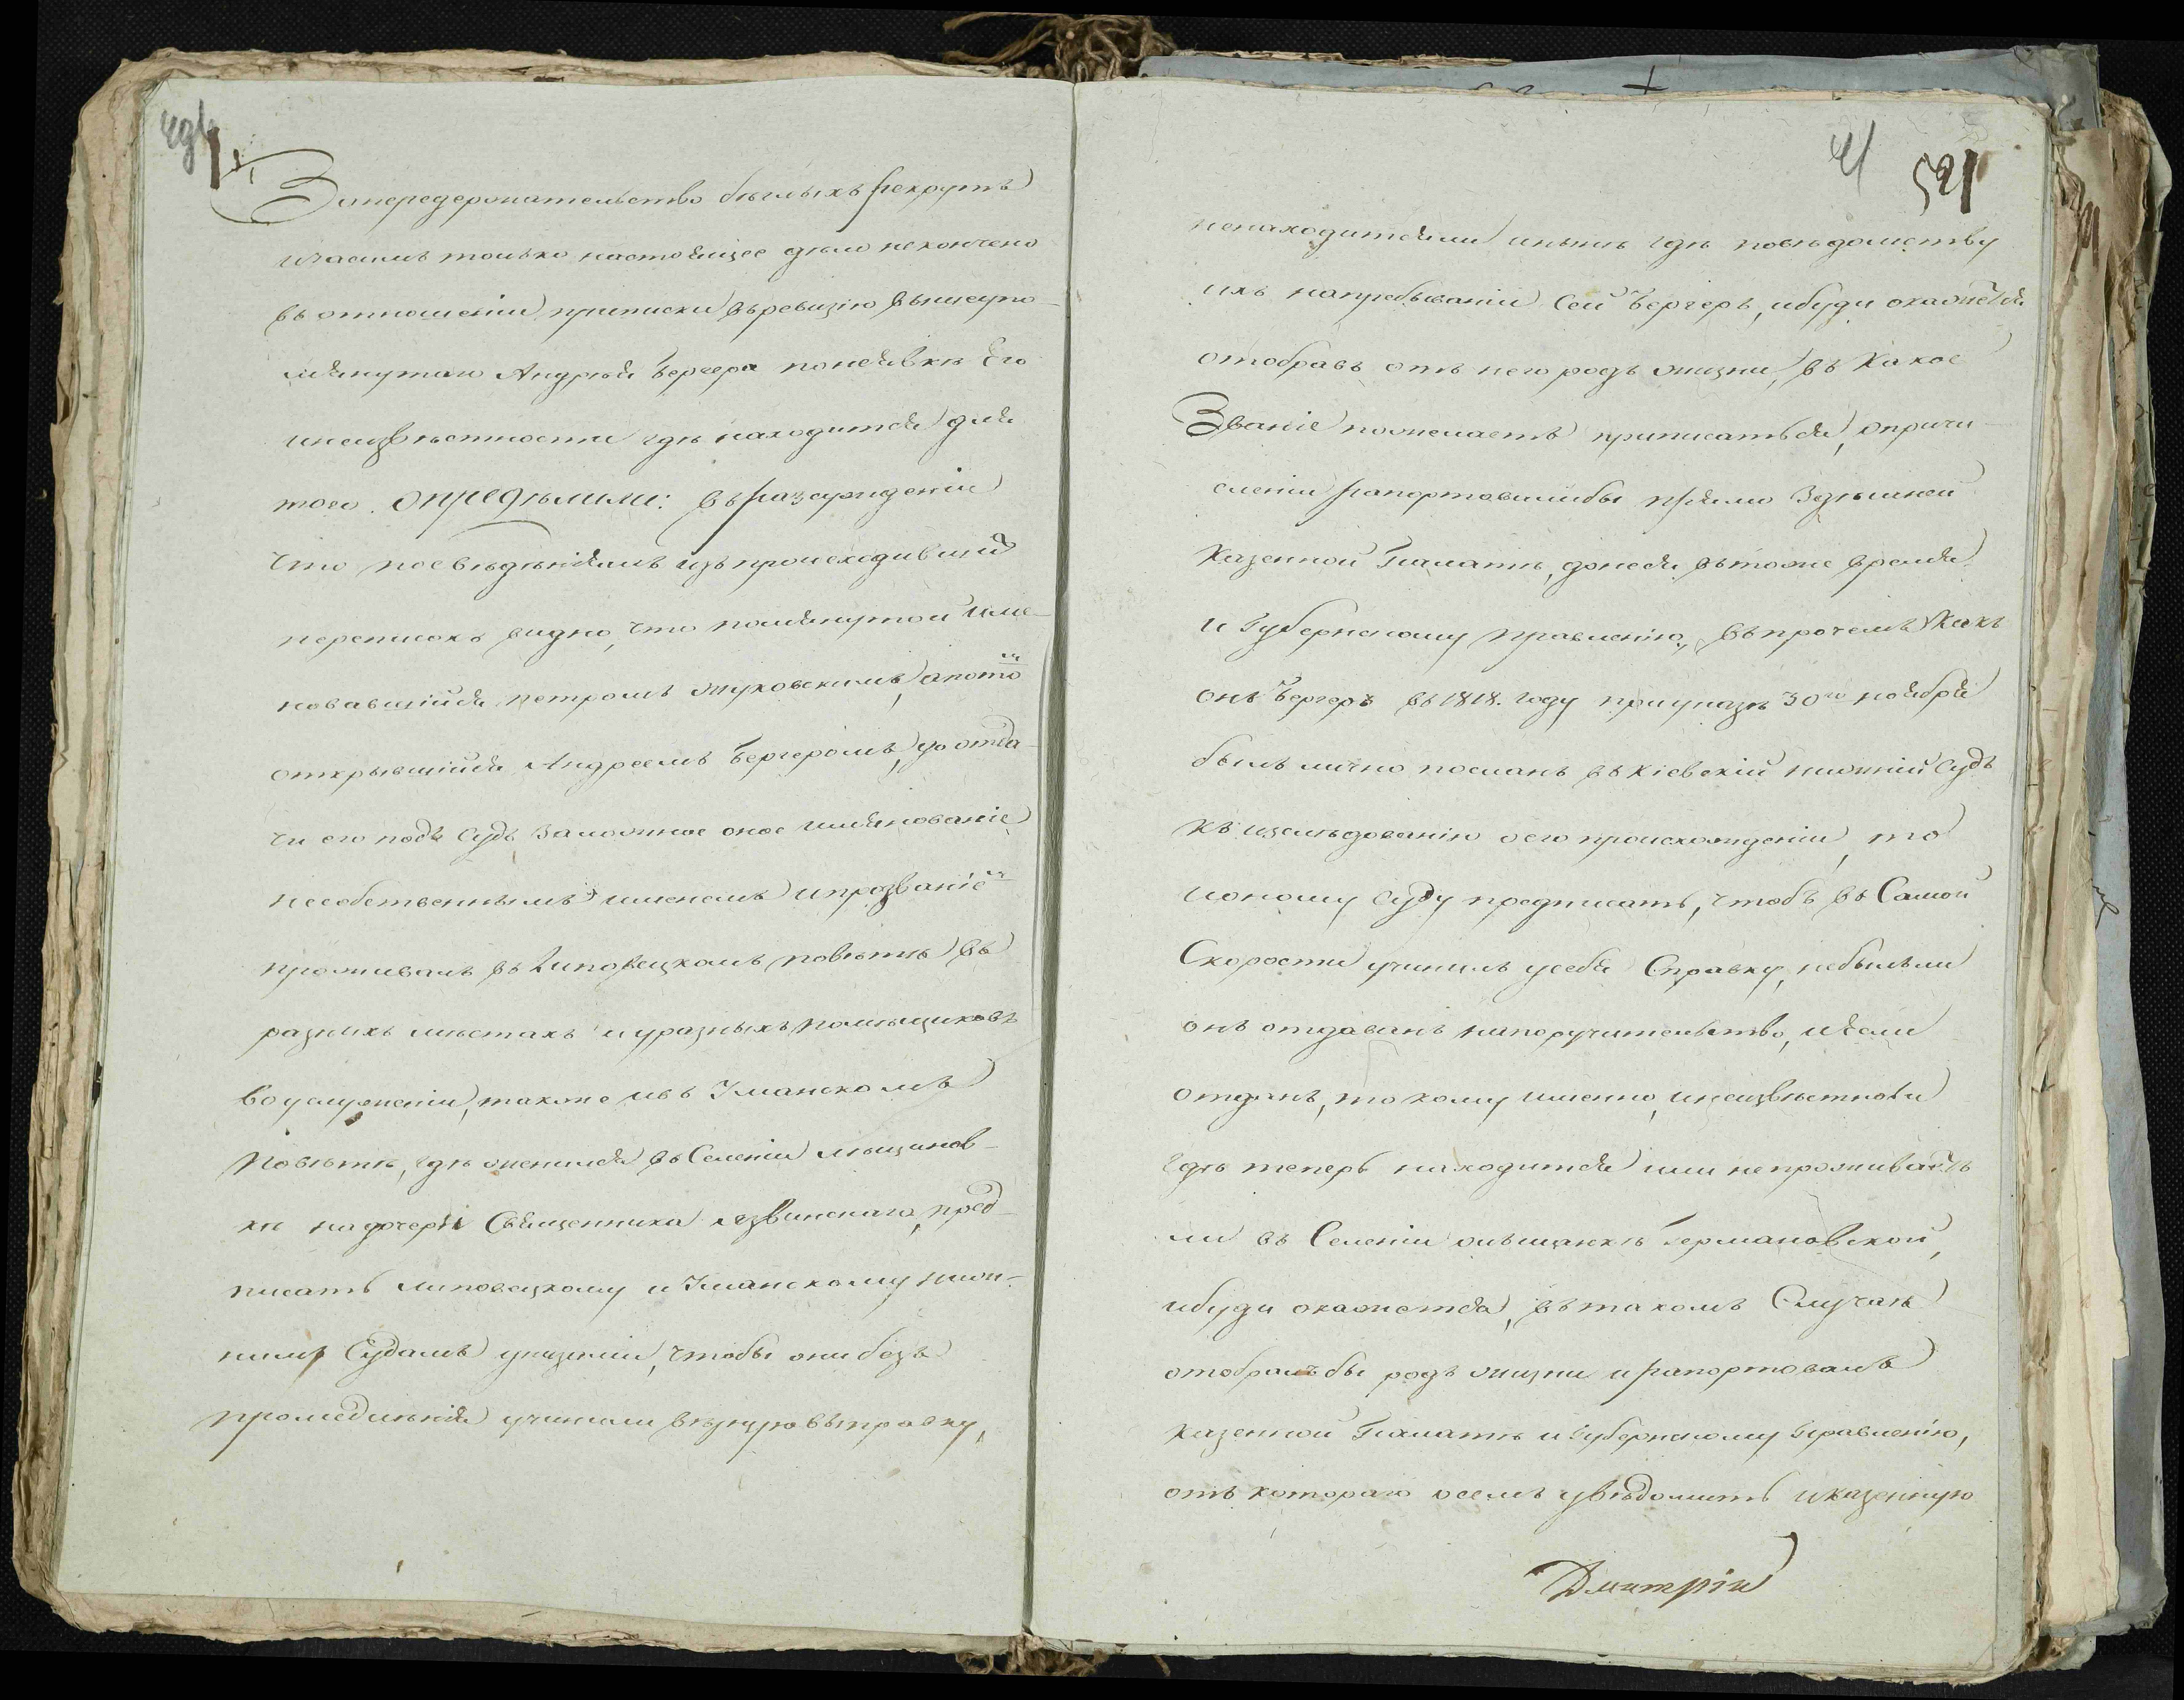 За передержательство беглыхъ рекрутъ
и часть только настоящее дело не кончено
въ отношеніи приписки въ ревизію вышеупо-
мянутаго Андрея Бергера по неявке Его
и неизвестности где находится для
того. определили: въ разсужденіи
что по сведеніямъ изъ происходившей
переписокъ видно, что помянутой име-
новавшійся петромъ жуковскимъ, а пото
открывшійся Андреемъ Бергеромъ, до отда-
чи его подъ судъ за ложное оное имянованіе
несобственнымъ именемъ и прозваніе
проживалъ въ Липовецкомъ повѣтѣ въ
разныхъ местахъ и у разныхъ помещиковъ
во услуженіи, также и въ Уманскомъ
повѣтѣ, где женился въ Селеніи
ки на дочери Священника пред-
писать липовецкому и Уманскому ниж-
нимъ Судамъ указами, чтобы они безъ
промедленія учинили выправку,
521
не находится ли и ныне где по ведомству
ихъ на пребываніи Сей Бергеръ, и буди окажется
отобравъ отъ него родъ жизни, въ какое
Званіе пожелаетъ приписаться, о причи-
сленіи рапортовали бы прямо Здешней
Казенной Палате, донеся въ тоже время
и Губернскому правленію, въ прочемъ какъ
онъ Бергеръ въ 1818. году при указе 30го ноября
былъ лично посланъ въ Кіевскій нижній Судъ
къ изследованію о его происхожденіи, то
и оному Суду предписать, чтобъ въ Самой
Скорости учинилъ у себя Справку, не былъ ли
онъ отдаванъ на поручительство, и если
отданъ, то кому именно, и неизвестно ли
где теперь находится или не проживаетъ
ли въ Селеніи ольшанке Германовской,
и буди окажется, въ такомъ Случае
отобралъ бы родъ жизни и рапортовалъ
казенной Палате и Губернскому Правленію,
отъ котораго о семъ уведомить и казенную
Дмитрій